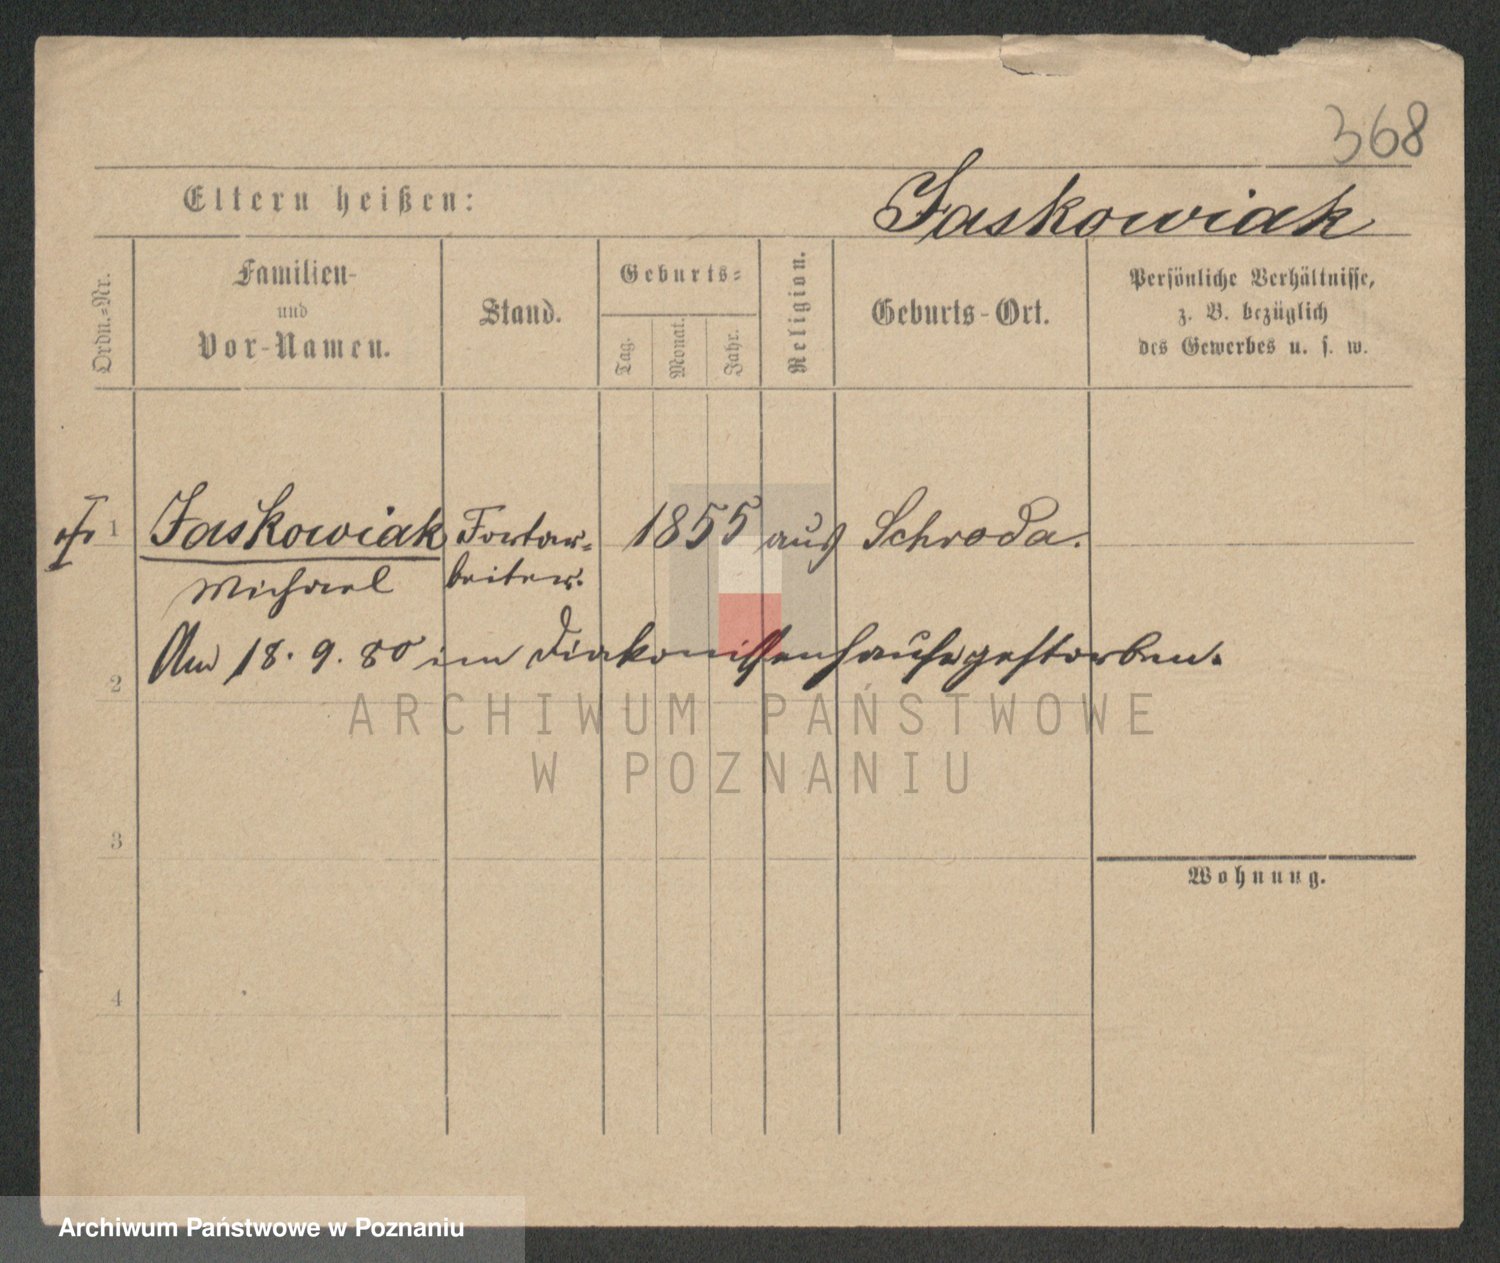 368
Eltern heißen:
Jaskowiak
Ordn.-Nr.
Familien-
und
Vor-Namen.
Stand.
Geburts-
Tag.
Monat.
Jahr.
Religion.
Geburts-Ort.
Persönliche Verhältnisse,
z. B. bezüglich
des Gewerbes u. s. w.
1 Jaskowiak Fortar- 1855 aus Schroda.
Michael beiter.
Am 18. 9. 80 im Diakonissenhause gestorben.
2
ARCHIWUM PAŃSTWOWE
W POZNANIU
3
Wohnung.
4
Archiwum Państwowe w Poznaniu